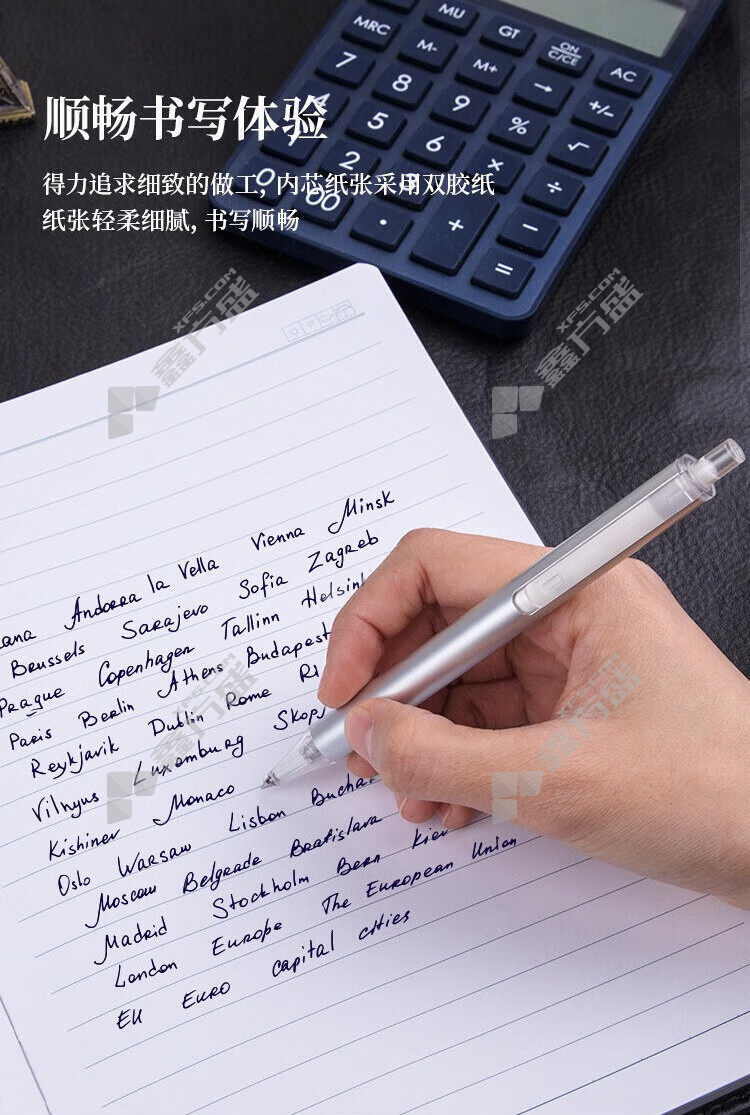 MRC MU GT ON C/CE AC
7 M- M+ → +/-
4 8 9 % √
1 5 6 × ÷
0 2 3 + −
00 · =
顺畅书写体验
得力追求细致的做工, 内芯纸张采用双胶纸
纸张轻柔细腻, 书写顺畅
XFS.COM
鑫方盛
XFS.COM
鑫方盛
Andorra la Vella Vienna Minsk
Brussels Sarajevo Sofia Zagreb
Prague Copenhagen Tallinn
Paris Berlin Athens Budapest
Reykjavik Dublin Rome
Vilnyus Luxemburg
Kishiner Monaco
Oslo Warsaw Lisbon
Moscow Belgrade Bratislava
Madrid Stockholm Bern Kiev
London Europe The European Union
EU EURO capital cities
鑫方盛
鑫方盛